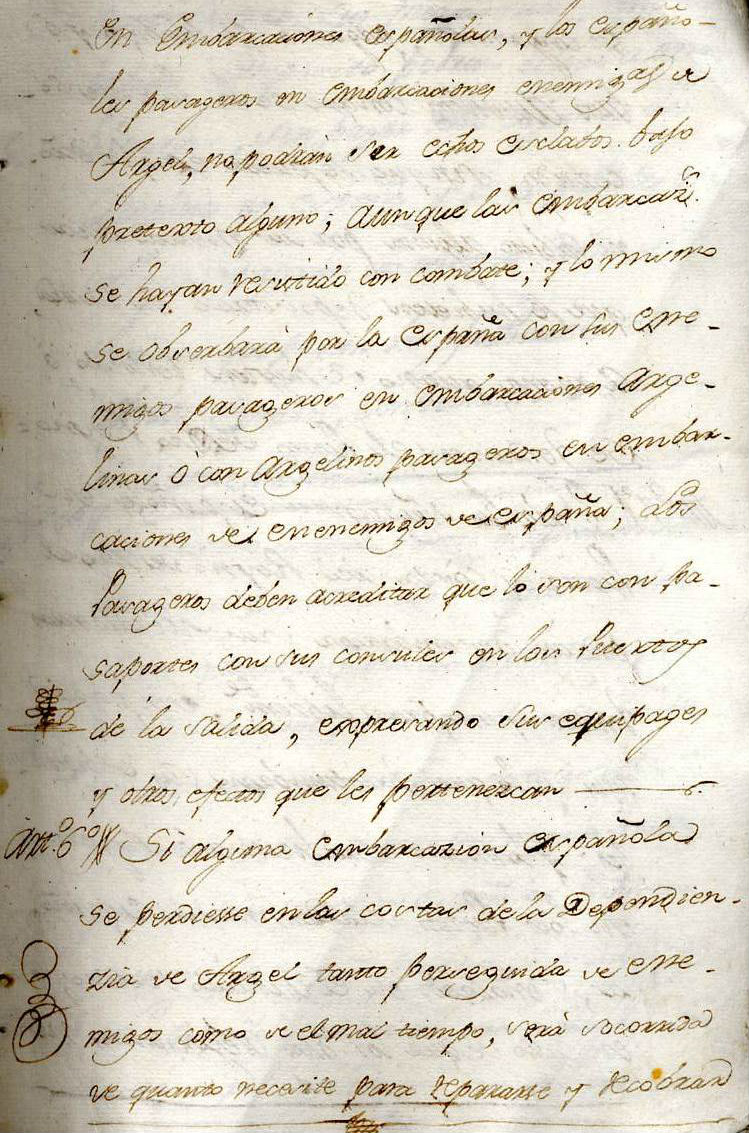 En Embarcaciones españolas, y los españo-
les pasageros en embarcaciones enemigas de
Argel, no podran ser echos esclabos bajo
pretexto alguno; aunque las embarcaz.s
se hayan resistido con combate; y lo mismo
se obserbará por la españa con sus ene-
migos pasageros en embarcaciones Arge-
linas ó con Argelinos pasageros en embar-
caciones de enenemigos de españa; Los
Pasageros deben acreditar que lo son con pa-
saportes con sus consules en los Puertos
de la salida, expresando sus equipages
y otros efectos que les pertenezcan
Art.o 6.o Si alguna Embarcazion española
se perdiesse en las costas de la Dependien-
zia de Argel tanto perseguida de ene-
migos como de el mal tiempo, será socorrida
de quanto necesite para repararse y recobrar